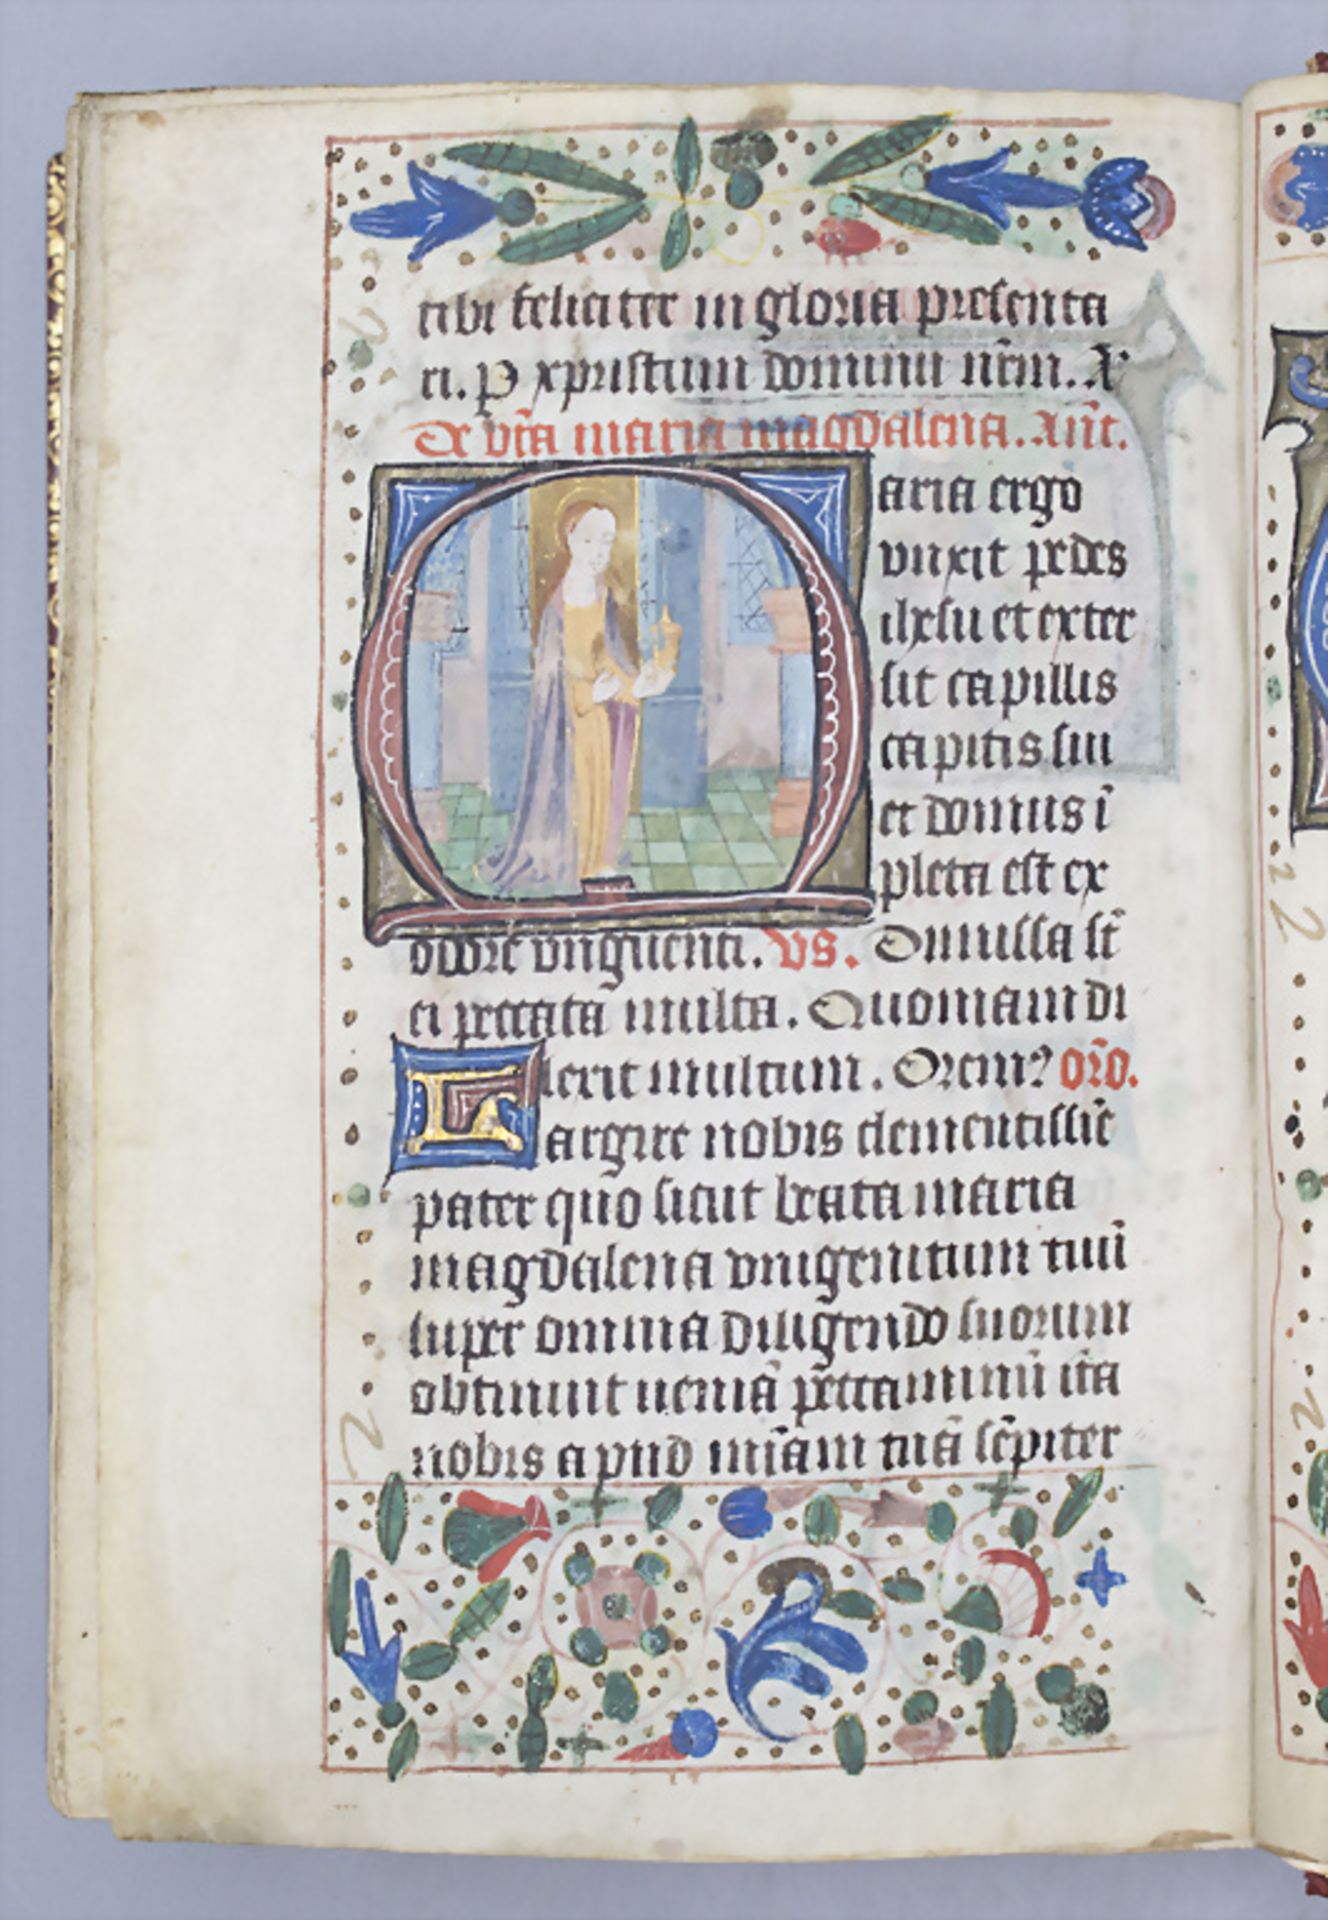 tibi feliciter in gloria presenta
ri. P xpristum dominū nr̄m. A
De sc̄ta maria magdalena. Ant̄.
Maria ergo
vnxit pedes
ihesu et exter
sit capillis
capitis sui
et domus ī
pleta est ex
odore vnguenti. vs. Dimissa st̄
ei peccata multa. Quoniam di
lexit multum. Orem⁹ or̄o.
Largire nobis clementissīe
pater quo sicut beata maria
magdalena vnigenitum tuū
super omnia diligendo suorum
obtinuit ueniā pēccaminū ita
nobis apud mīam tuā sēpiter